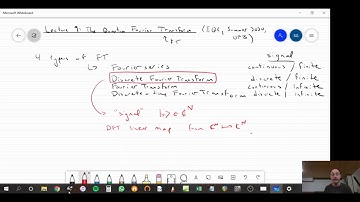 Microsoft Whiteboard
Lecture 9: The Quantum Fourier Transform (IQC, Summer 2020, UPB)
QFT
4 types of FT
signal
Fourier series continuous / finite
Discrete Fourier Transform discrete / finite
Fourier Transform continuous / infinite
Discrete-time Fourier Transform discrete / infinite
"signal"
DFT linear map from